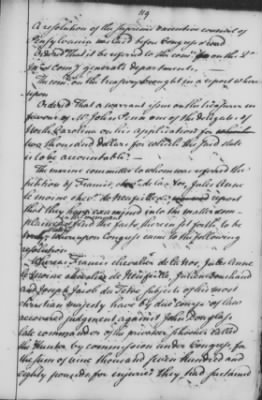 119
A resolution of the supreme executive council of
Pensylvania was laid before Congress & read
Ordered That it be referred to the comee on the
Comy generals department.
The comee on the treasury brought in a report where
upon
Ordered That a warrant issue on the treasurer in
favour of Mr John Penn one of the delegates of
North Carolina on his application for
two thousand dollars for which the said state
is to be accountable.
The marine committee to whom was referred the
petition by Francis, chevr de la Croix, Jules Anne
le moine chevr de report
that they have examined into the matter com-
plained of and the facts therein set forth, to be
Whereupon Congress came to the following
resolution
Whereas Francis chevalier de la Croix, Jules Anne
le moine chevalier de Julien Bouchaud
and Joseph Jacob subjects of his most
christian majesty have by due course of law
recovered judgment against John Douglass
late commander of the privateer schooner called
the Hunter by commission under Congress for
the sum of nine thousand seven hundred and
eighty pounds for injuries they had sustained